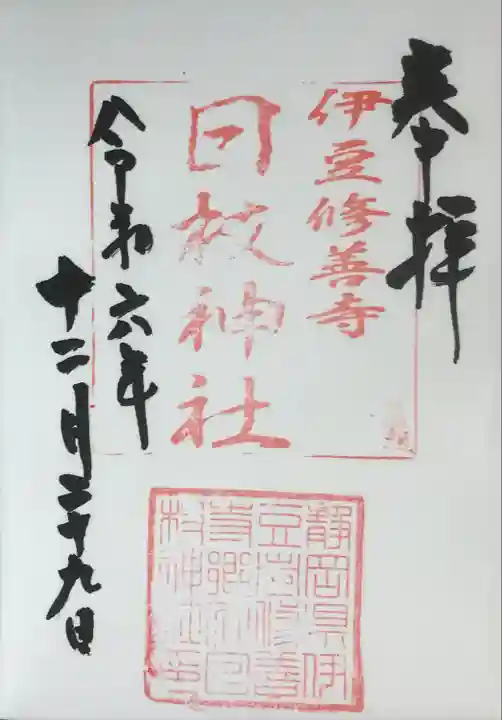 奉拝
伊豆修善寺
日枝神社
令和六年
十二月二十九日
静岡県伊
豆市修善
寺郷社日
枝神社印